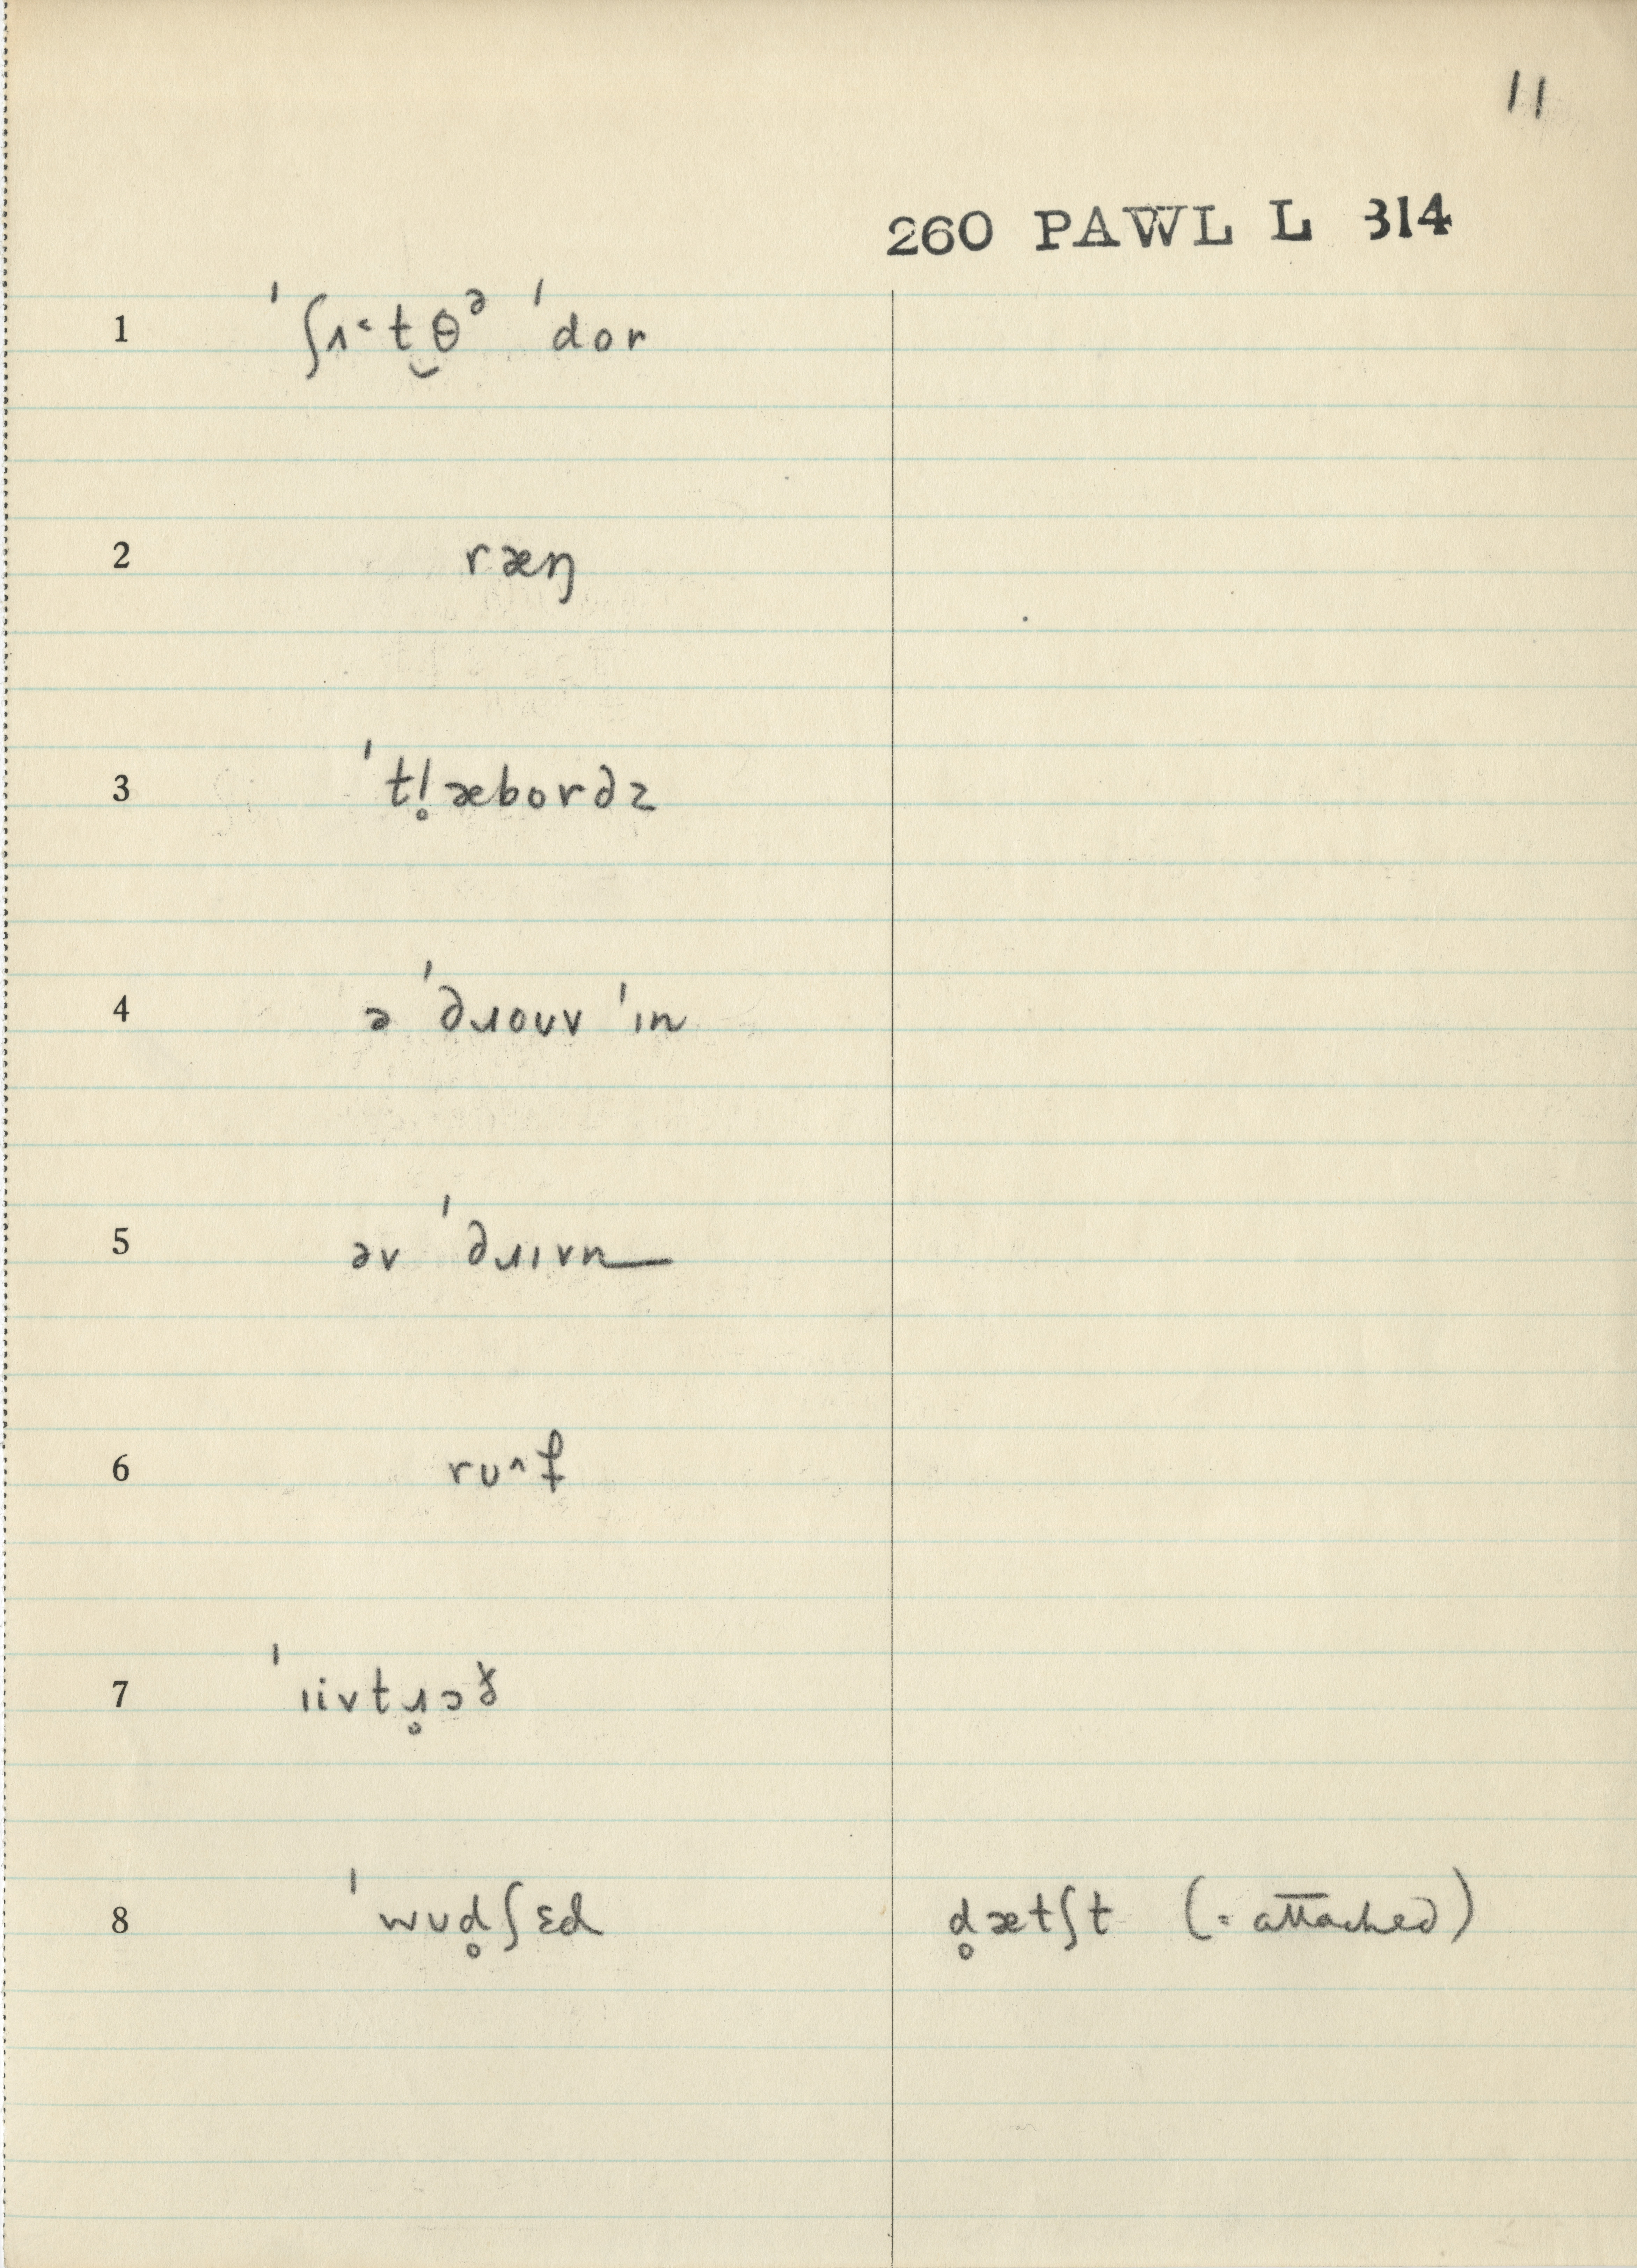 11
260 PAWL L 314
1 ˈʃɪ˂t̪θᵊ ˈdor
2 ræŋ
3 ˈtl̥æbordz
4 ə ˈdɹouv ˈɪn
5 əv ˈdɹɪvn
6 rʊ^f
7 ˈiivtɹ̥ɔɤ
8 ˈwʊd̥ʃɛd d̥ætʃt (= attached)